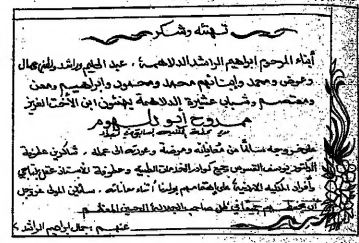 تهنئة وشكر
أبناء المرحوم ابراهيم الراشد الدلاهمة، عبد الحليم وراشد وجمال
وعوض ومحمد وأبنائهم محمد ومحمود وابراهيم ومعن
ومعتصم وشباب عشيرة الدلاهمة يهنئون ابن الأخت العزيز
ممدوح ابو دلهوم
على خروجه سالماً من وعودته الى عمله شاكرين عطوفة
الدكتور يوسف القسوس وجميع كوادر الخدمات الطبية وعطوفة الأستاذ
وأفراد الملكية الأردنية على بولدنا أثناء معاناته سائلين المولى عز وجل
أن يحفظهم جميعاً في ظل صاحب الجلالة الحسين المعظم
عنهم جمال ابراهيم الراشد